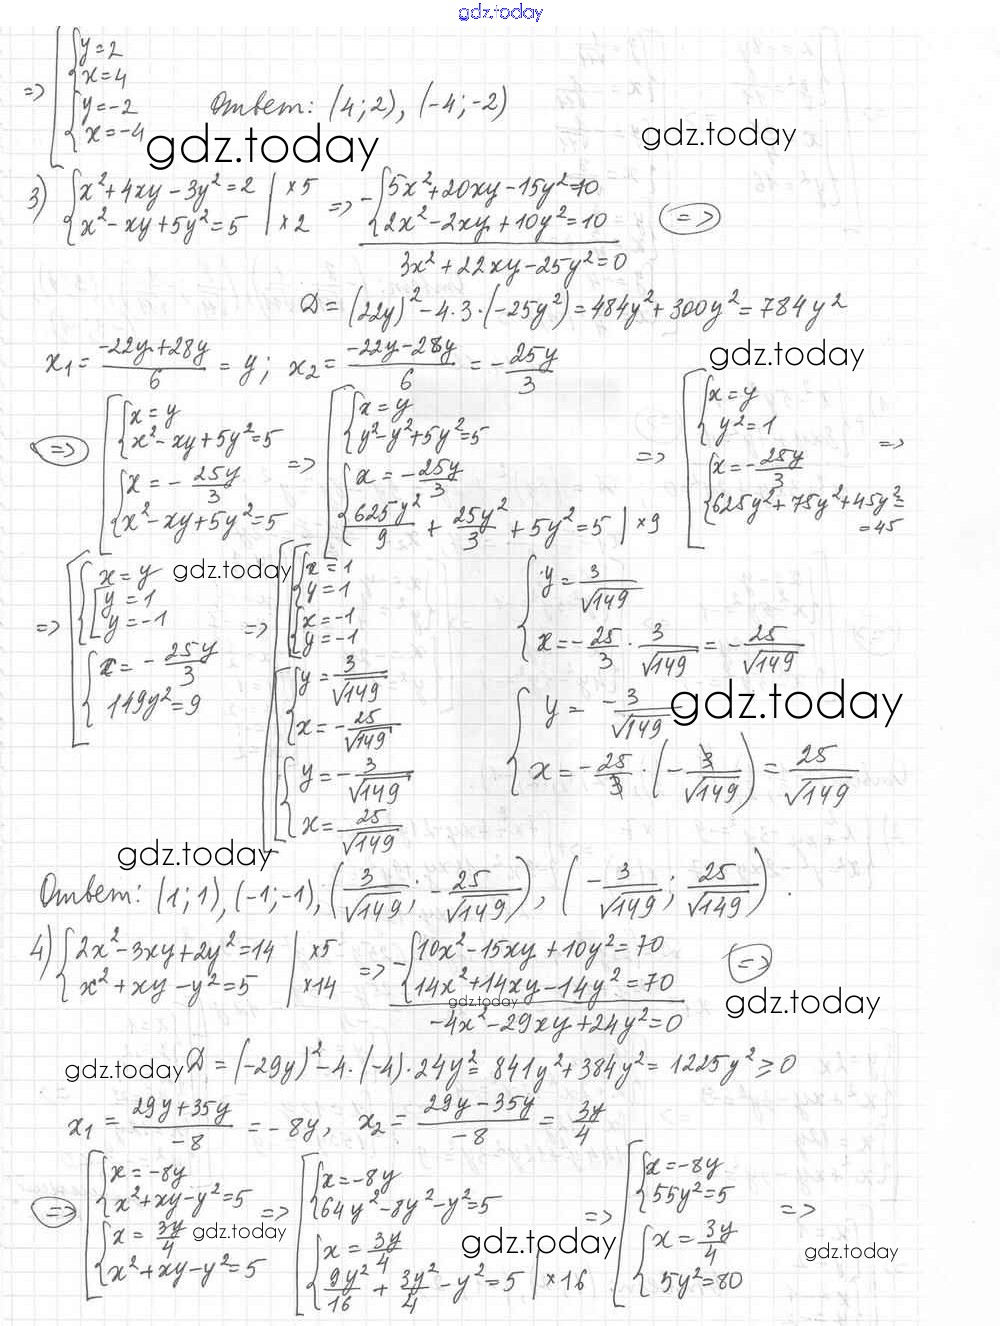 gdz.today
=> [ { y=2
x=4
{ y=-2
x=-4
Ответ: (4;2), (-4;-2)
gdz.today
gdz.today
3) { x²+4xy-3y²=2 | ×5 => - { 5x²+20xy-15y²=10
x²-xy+5y²=5 | ×2 { 2x²-2xy+10y²=10 (=>)
3x²+22xy-25y²=0
D=(22y)²-4·3·(-25y²)=484y²+300y²=784y²
x₁= (-22y+28y)/6 = y; x₂= (-22y-28y)/6 = -25y/3
gdz.today
(=>) [ { x=y
x²-xy+5y²=5
{ x=-25y/3
x²-xy+5y²=5
=> [ { x=y
y²-y²+5y²=5
{ x=-25y/3
625y²/9 + 25y²/3 + 5y²=5 | ×9
=> [ { x=y
y²=1
{ x=-25y/3
625y²+75y²+45y²=
=45
=>
=> [ { x=y
[ y=1
y=-1
{ x=-25y/3
149y²=9
gdz.today
=> [ [ { x=1
y=1
{ x=-1
y=-1
[ { y=3/√149
x=-25/√149
{ y=-3/√149
x=25/√149
{ y=3/√149
x=-25/3 · 3/√149 = -25/√149
{ y=-3/√149
x=-25/3 · (-3/√149) = 25/√149
gdz.today
gdz.today
Ответ: (1;1), (-1;-1), (3/√149; -25/√149), (-3/√149; 25/√149).
4) { 2x²-3xy+2y²=14 | ×5 => - { 10x²-15xy+10y²=70
x²+xy-y²=5 | ×14 { 14x²+14xy-14y²=70 (=>)
gdz.today
gdz.today
-4x²-29xy+24y²=0
gdz.today
D=(-29y)²-4·(-4)·24y²=841y²+384y²=1225y²≥0
x₁= (29y+35y)/-8 = -8y, x₂= (29y-35y)/-8 = 3y/4
(=>) [ { x=-8y
x²+xy-y²=5
{ x=3y/4
x²+xy-y²=5
gdz.today
=> [ { x=-8y
64y²-8y²-y²=5
{ x=3y/4
9y²/16 + 3y²/4 - y²=5 | ×16
gdz.today
=> [ { x=-8y
55y²=5
{ x=3y/4
5y²=80
=>
gdz.today